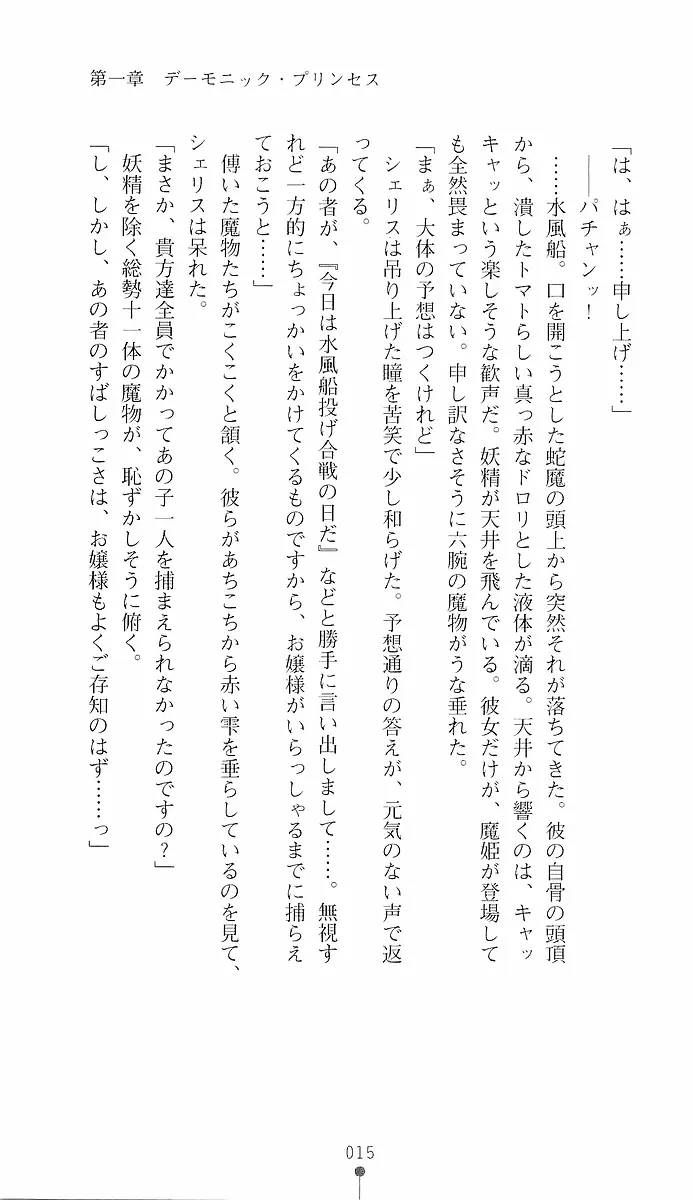 第一章　デーモニック・プリンセス
「は、はぁ……申し上げ……」
――パチャンッ！
……水風船。口を開こうとした蛇魔の頭上から突然それが落ちてきた。彼の自骨の頭頂
から、潰したトマトらしい真っ赤なドロリとした液体が滴る。天井から響くのは、キャッ
キャッという楽しそうな歓声だ。妖精が天井を飛んでいる。彼女だけが、魔姫が登場して
も全然畏まっていない。申し訳なさそうに六腕の魔物がうな垂れた。
「まぁ、大体の予想はつくけれど」
シェリスは吊り上げた瞳を苦笑で少し和らげた。予想通りの答えが、元気のない声で返
ってくる。
「あの者が、『今日は水風船投げ合戦の日だ』などと勝手に言い出しまして……。無視す
れど一方的にちょっかいをかけてくるものですから、お嬢様がいらっしゃるまでに捕らえ
ておこうと……」
傅いた魔物たちがこくこくと頷く。彼らがあちこちから赤い雫を垂らしているのを見て、
シェリスは呆れた。
「まさか、貴方達全員でかかってあの子一人を捕まえられなかったのですの？」
妖精を除く総勢十一体の魔物が、恥ずかしそうに俯く。
「し、しかし、あの者のすばしっこさは、お嬢様もよくご存知のはず……っ」
015